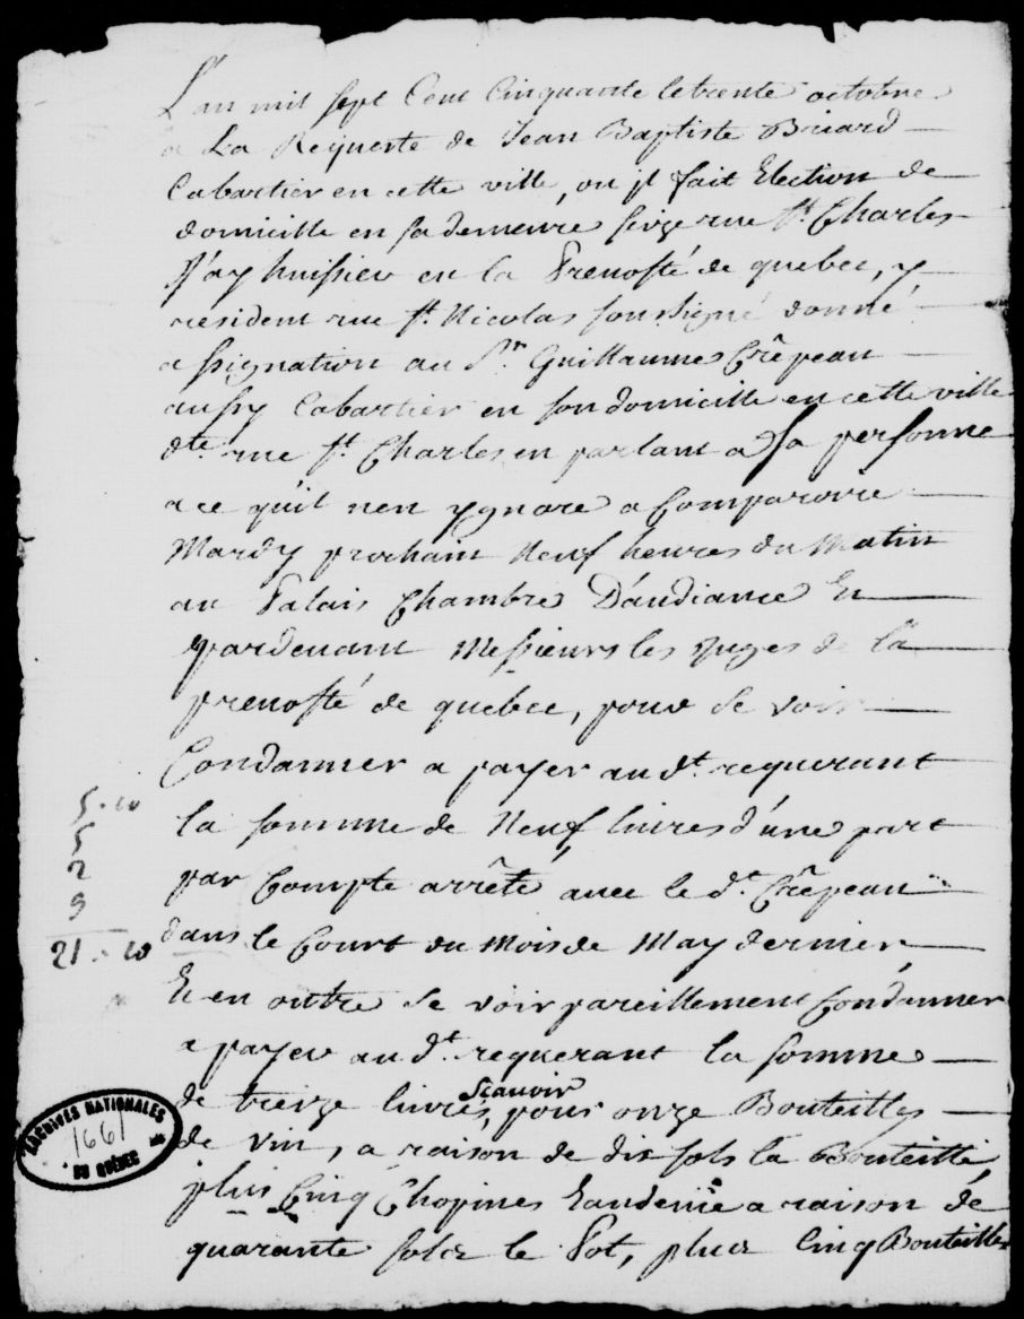 L'an mil sept Cent Cinquante le trente octobre
a La Requeste de Jean Baptiste Briard
Cabartier en cette ville, ou jl fait Election de
domicille en sa demeure sirge rue St. Charles
J'ay huissier en la Prevosté de quebec, y
resident rue St. Nicolas soussigné donné
assignation au Sr. Guillaume Crêpeau
aussy Cabartier en son domicille en cette ville
dte rue St. Charles en parlant a sa personne
a ce quil nen ygnore a Comparoire
Mardy prochain Neuf heures du Matin
au Palais Chambre D'audiance Et
pardevant Messieurs les Juges de la
prevosté de quebec, pour se voir
Condamner a payer au dt. requerant
5. 10
la somme de Neuf livres d'une part
5
2
par Compte arrêté avec le dt. Crêpeau
9
dans le Court du Mois de May dernier
21 .. 10
Et en outre se voir pareillement Condamner
a payer au dt. requerant la somme
de treize livres, scavoir pour onze Bouteilles
de vin, a raison de dix sols la Bouteille
plus Cinq Chopines Eaudevie a raison de
quarante sols le Pot, plus Cinq Bouteilles
ARCHIVES NATIONALES
1661
DU QUÉBEC